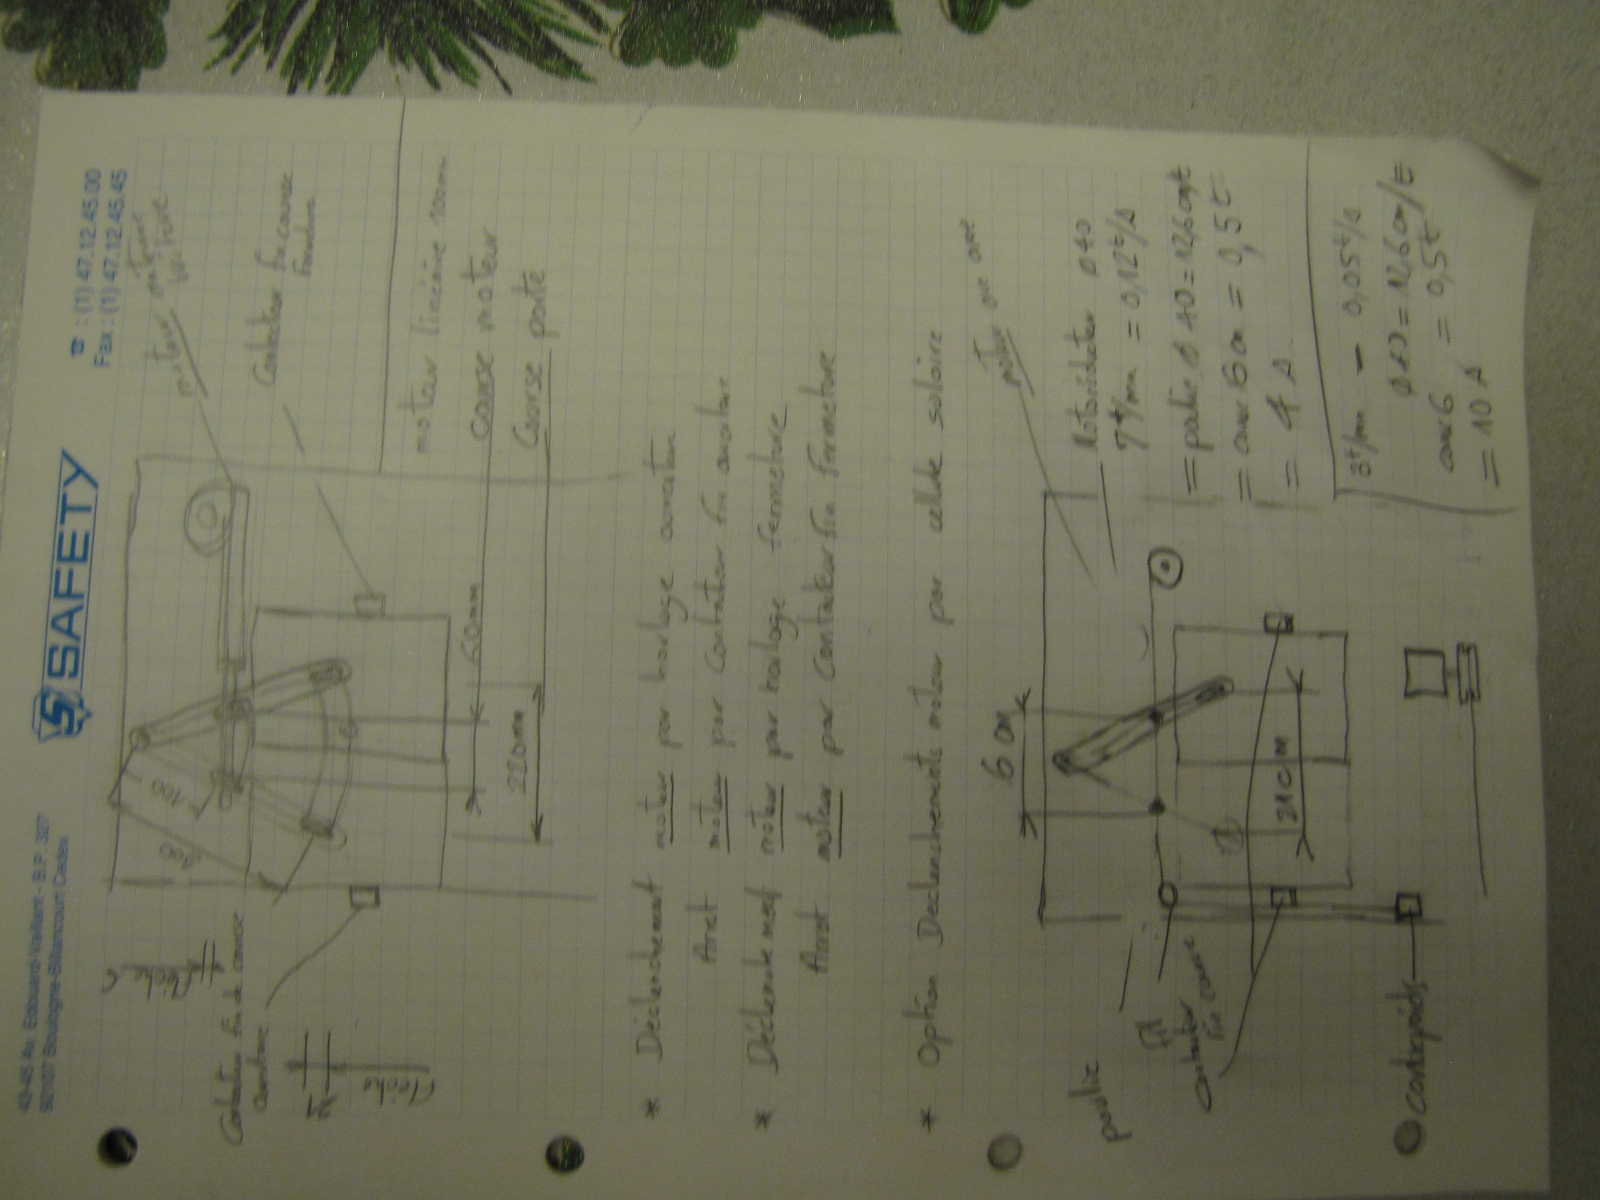 SAFETY
43-45 Av. Edouard-Vaillant - B.P. 327
92107 Boulogne-Billancourt Cedex
☎ : (1) 47.12.45.00
Fax : (1) 47.12.45.45
moteur
Contacteur fin course
Contacteur fin de course
ouverture
100
moteur linéaire
Course moteur
Course porte
60mm
220mm
* Déclenchement moteur par horloge ouverture
Arret moteur par Contacteur fin ouverture
* Déclenchement moteur par horloge fermeture
Arret moteur par Contacteur fin Fermeture
* Option Declenchements moteur par cellule solaire
moteur
6 cm
Motoréducteur
7t/mn = 0,12t/s
= poulie Ø 40 = 12,6 cm/t
= course 6 cm = 0,5t
= 4 s
3t/mn - 0,05t/s
Ø 40 = 12,6 cm/t
course 6 = 0,5t
= 10 s
21 cm
poulie
fil
contacteur
fin course
contrepoids